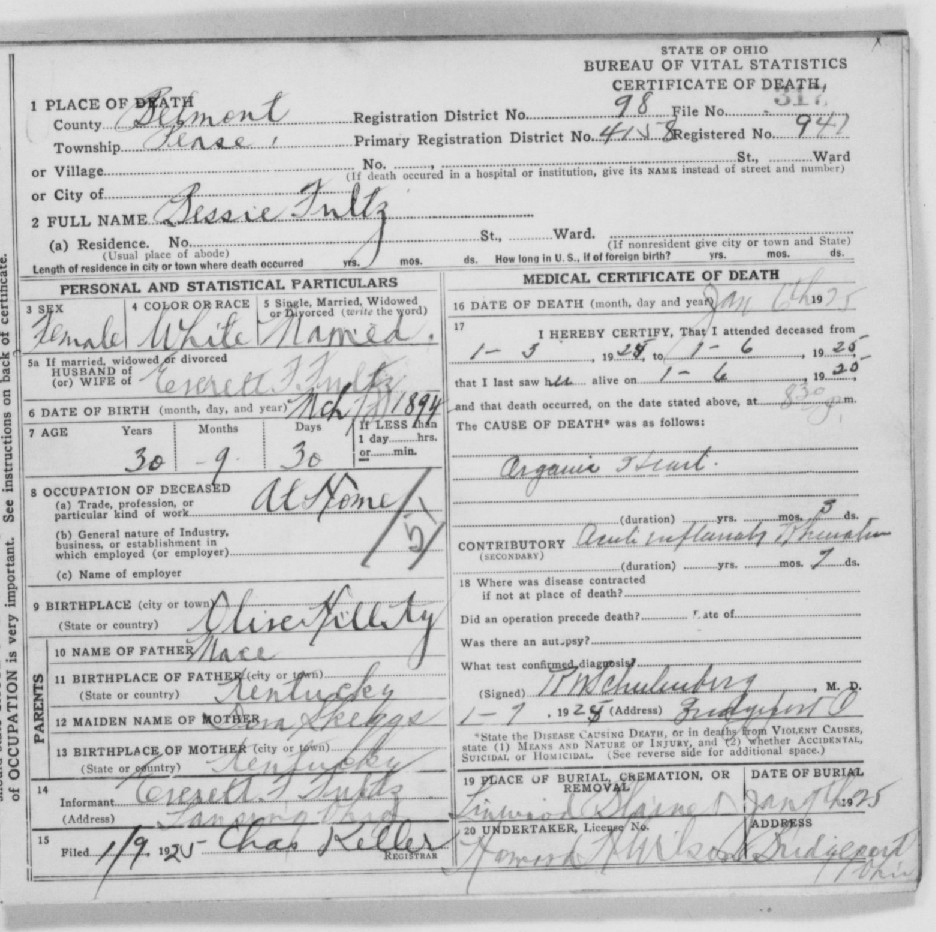 STATE OF OHIO
BUREAU OF VITAL STATISTICS
CERTIFICATE OF DEATH
317
1 PLACE OF DEATH
County Belmont Registration District No. 98 File No.
Township Pease Primary Registration District No. 4158 Registered No. 947
or Village No. , St., Ward
(If death occured in a hospital or institution, give its NAME instead of street and number)
or City of
2 FULL NAME Bessie Fultz
(a) Residence. No. St., Ward.
(Usual place of abode) (If nonresident give city or town and State)
Length of residence in city or town where death occurred yrs. mos. ds. How long in U. S., if of foreign birth? yrs. mos. ds.
PERSONAL AND STATISTICAL PARTICULARS
3 SEX 4 COLOR OR RACE 5 Single, Married, Widowed or Divorced (write the word)
Female White Married.
5a If married, widowed or divorced
HUSBAND of
(or) WIFE of Everett F Fultz
6 DATE OF BIRTH (month, day, and year) Mch 1894
7 AGE Years Months Days If LESS than 1 day hrs. or min.
30 9 30
8 OCCUPATION OF DECEASED
(a) Trade, profession, or particular kind of work At Home
(b) General nature of Industry, business, or establishment in which employed (or employer)
(c) Name of employer
9 BIRTHPLACE (city or town)
(State or country) Olive Hill Ky
PARENTS
10 NAME OF FATHER Mace
11 BIRTHPLACE OF FATHER (city or town)
(State or country) Kentucky
12 MAIDEN NAME OF MOTHER Dora Skeggs
13 BIRTHPLACE OF MOTHER (city or town)
(State or country) Kentucky
14
Informant Everett F Fultz
(Address) Lansing Ohio
15
Filed 1/9 1925 Chas Keller
REGISTRAR
MEDICAL CERTIFICATE OF DEATH
16 DATE OF DEATH (month, day and year) Jan 6th 1925
17 I HEREBY CERTIFY, That I attended deceased from
1-3, 1925, to 1-6, 1925,
that I last saw her alive on 1-6, 1925
and that death occurred, on the date stated above, at 830 p.m.
The CAUSE OF DEATH* was as follows:
Organic Heart.
(duration) yrs. mos. 3 ds.
CONTRIBUTORY Acute
(SECONDARY)
(duration) yrs. mos. 7 ds.
18 Where was disease contracted
if not at place of death?
Did an operation precede death? Date of
Was there an autopsy?
What test confirmed diagnosis?
(Signed) R M Schulenberg, M. D.
1-7, 1925 (Address) Bridgeport O
*State the DISEASE CAUSING DEATH, or in deaths from VIOLENT CAUSES,
state (1) MEANS AND NATURE OF INJURY, and (2) whether ACCIDENTAL,
SUICIDAL or HOMICIDAL. (See reverse side for additional space.)
19 PLACE OF BURIAL, CREMATION, OR REMOVAL DATE OF BURIAL
Linwood Jan 9th 1925
20 UNDERTAKER, License No. ADDRESS
Wilson Bridgeport Ohio
of OCCUPATION is very important. See instructions on back of certificate.